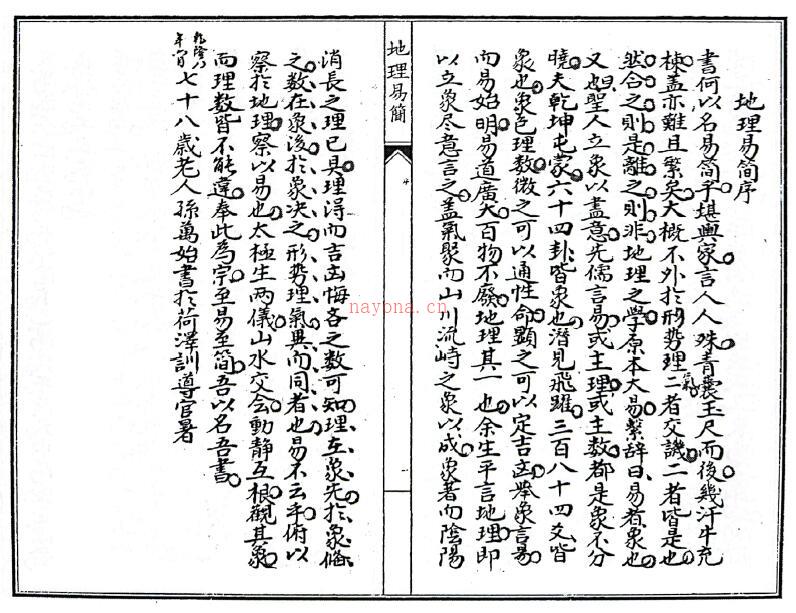 地理易簡序
書何以名易簡乎堪輿家言人人殊青囊玉尺而後幾汗牛充
棟盖亦難且繁矣大概不外扵形勢理氣二者交譏二者皆是也
然合之則是離之則非地理之學原本大易繫辭曰易者象也
又曰聖人立象以盡意先儒言易或主理或主数都是象不分
曉夫乾坤屯蒙六十四卦皆象也潛見飛躍三百八十四爻皆
象也象包理数微之可以通性命顯之可以定吉凶舉象言易
而易始明易道廣大百物不廢地理其一也余生平言地理即
以立象尽意言之盖氣聚而山川流峙之象以成象著而陰陽
地理易簡
消長之理已具理淂而吉凶悔吝之数可知理在象先扵象偹
之数在象後扵象决之形勢理氣異而同者也易不云乎俯以
察扵地理察以易也太極生两儀山水交會動靜互根觀其象
而理数皆不能違奉此為宗至易至簡吾以名吾書
乾隆
年
七十八歲老人孫萬始書扵荷澤訓導官署
nayona.cn